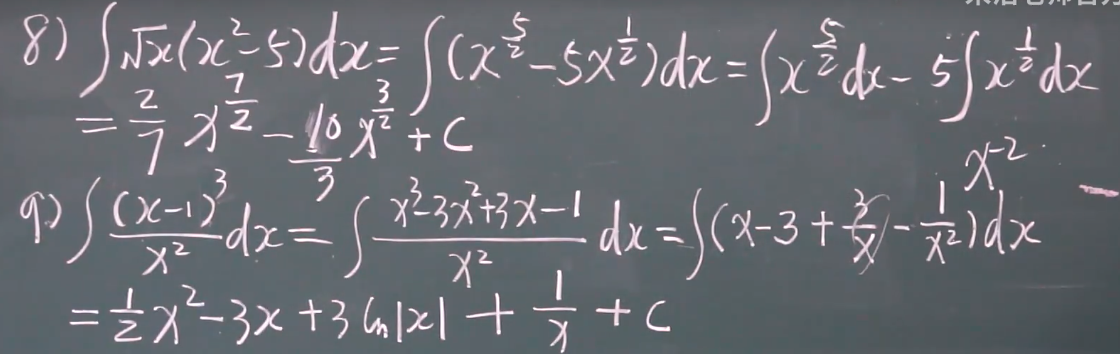 8) ∫√x(x²-5)dx = ∫(x^{5/2} - 5x^{1/2})dx = ∫x^{5/2}dx - 5∫x^{1/2}dx
= 2/7 x^{7/2} - 10/3 x^{3/2} + C
x^{-2}
9) ∫(x-1)³/x² dx = ∫(x³-3x²+3x-1)/x² dx = ∫(x-3+3/x-1/x²)dx
= 1/2 x² - 3x + 3ln|x| + 1/x + C